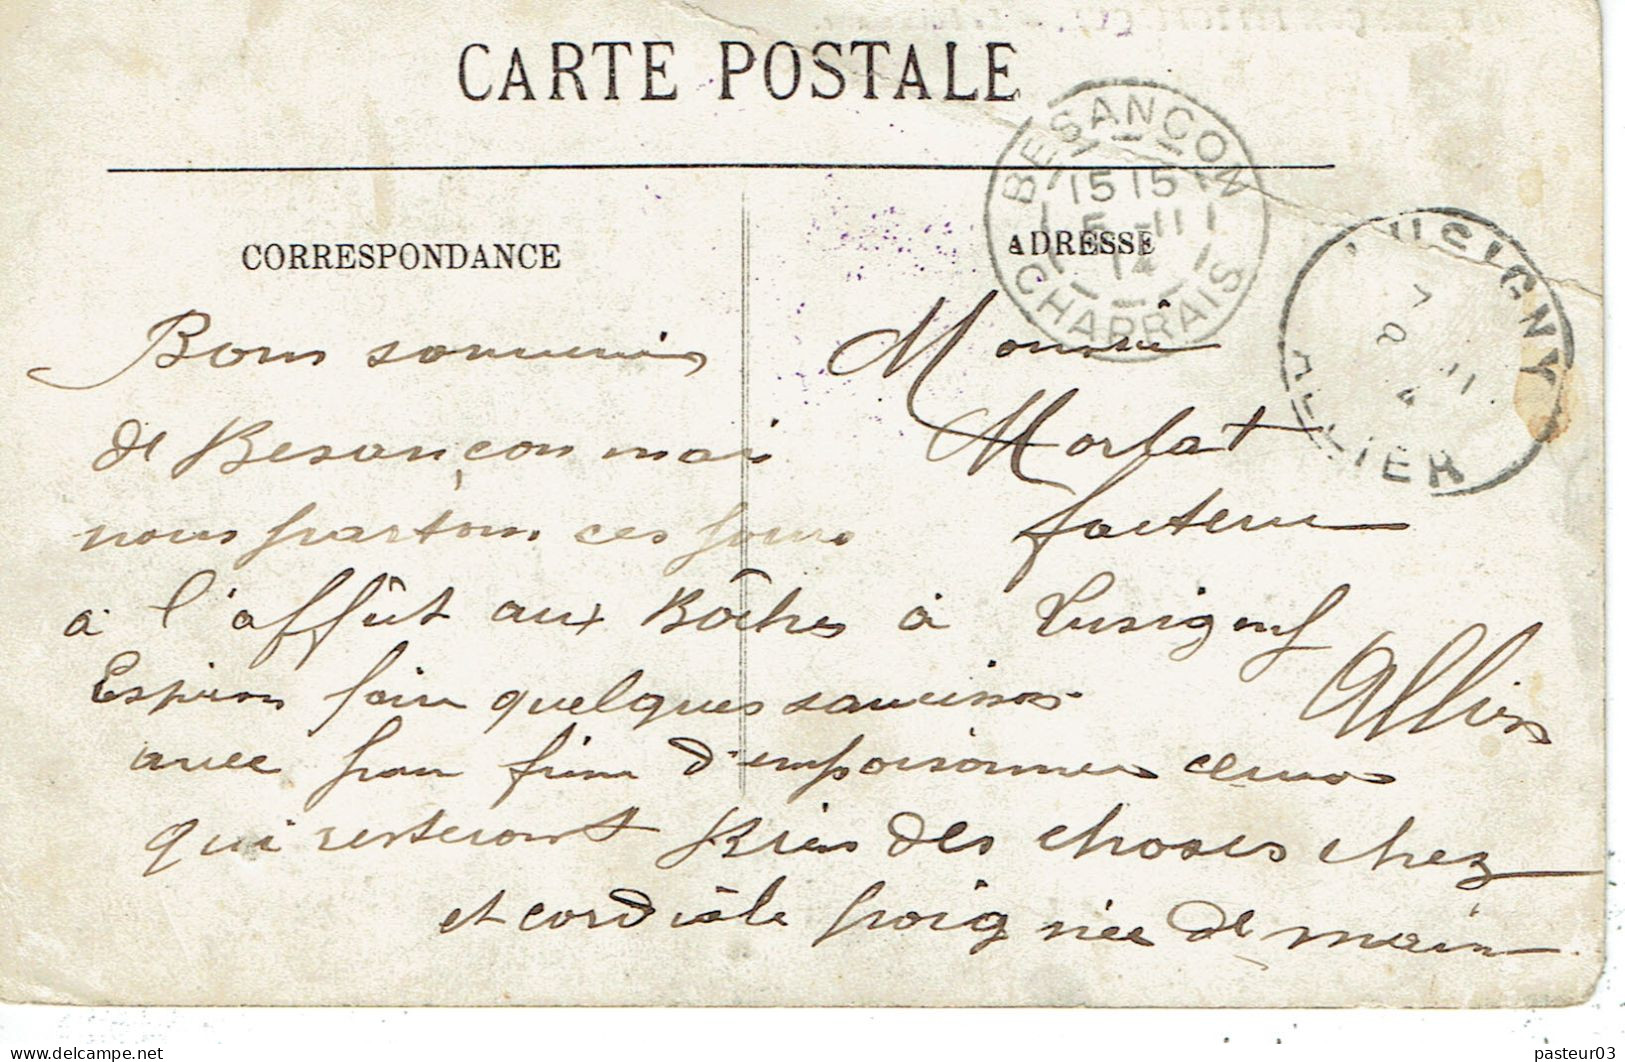 CARTE POSTALE
BESANÇON
15 15
5 -11
14
CHAPRAIS
LUSIGNY
ALLIER
CORRESPONDANCE
ADRESSE
Bons souvenirs
de Besançon mais
nous partons ces jours
à l'affût aux Bôches
Espérons faire quelques saucissons
avec pour d'empoisonner ceux
qui resteront Bien des choses chez
et cordiale poignée de main
Monsieur
Morlat
facteur
à Lusigny
Allier
pasteur03